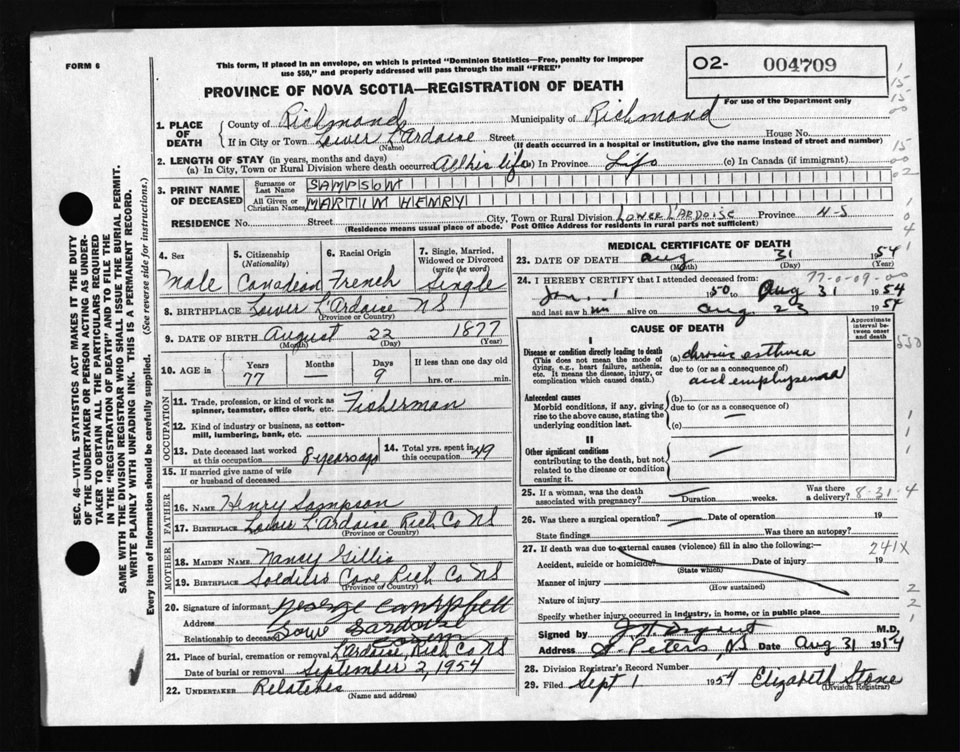 FORM 6
This form, if placed in an envelope, on which is printed "Dominion Statistics—Free, penalty for improper
use $50," and properly addressed will pass through the mail "FREE"
02- 004709
For use of the Department only
PROVINCE OF NOVA SCOTIA—REGISTRATION OF DEATH
1. PLACE OF DEATH
County of Richmond Municipality of Richmond
If in City or Town Lower L'Ardoise Street House No.
(Name) (If death occurred in a hospital or institution, give the name instead of street and number)
2. LENGTH OF STAY (in years, months and days)
(a) In City, Town or Rural Division where death occurred All his life (b) In Province Life (c) In Canada (if immigrant)
3. PRINT NAME OF DECEASED
Surname or Last Name SAMPSON
All Given or Christian Names MARTIN HENRY
RESIDENCE No. Street City, Town or Rural Division LOWER L'ARDOISE Province N-S
(Residence means usual place of abode. Post Office Address for residents in rural parts not sufficient)
4. Sex Male
5. Citizenship (Nationality) Canadian
6. Racial Origin French
7. Single, Married, Widowed or Divorced (write the word) Single
8. BIRTHPLACE Lower L'Ardoise NS
(Province or Country)
9. DATE OF BIRTH August 22 1877
(Month) (Day) (Year)
10. AGE in Years 77 Months — Days 9 If less than one day old hrs. or min.
OCCUPATION
11. Trade, profession, or kind of work as spinner, teamster, office clerk, etc. Fisherman
12. Kind of industry or business, as cotton-mill, lumbering, bank, etc.
13. Date deceased last worked at this occupation 8 years ago
14. Total yrs. spent in this occupation 49
15. If married give name of wife or husband of deceased
FATHER
16. NAME Henry Sampson
17. BIRTHPLACE Lower L'Ardoise Rich Co NS
(Province or Country)
MOTHER
18. MAIDEN NAME Nancy Gillis
19. BIRTHPLACE Soldiers Cove Rich Co NS
(Province or Country)
20. Signature of informant George Campbell
Address
Relationship to deceased
21. Place of burial, cremation or removal L'Ardoise Rich Co NS
Date of burial or removal September 2, 1954
22. UNDERTAKER Relatives
(Name and address)
MEDICAL CERTIFICATE OF DEATH
23. DATE OF DEATH Aug 31 1954
(Month) (Day) (Year)
77-0-09-00
24. I HEREBY CERTIFY that I attended deceased from:
Jan. 1 1950 to Aug 31 1954
and last saw him alive on Aug. 23 1954
CAUSE OF DEATH
Approximate interval between onset and death
I
Disease or condition directly leading to death
(This does not mean the mode of dying, e.g., heart failure, asthenia, etc. It means the disease, injury, or complication which caused death.)
(a) chronic asthma
due to (or as a consequence of)
and emphysema
Antecedent causes
Morbid conditions, if any, giving rise to the above cause, stating the underlying condition last.
(b)
due to (or as a consequence of)
(c)
II
Other significant conditions
contributing to the death, but not related to the disease or condition causing it.
25. If a woman, was the death associated with pregnancy? Duration weeks. Was there a delivery? 8-31-4
26. Was there a surgical operation? Date of operation 19
State findings Was there an autopsy?
27. If death was due to external causes (violence) fill in also the following:— 241X
Accident, suicide or homicide? Date of injury 19
(State which)
Manner of injury
(How sustained)
Nature of injury
Specify whether injury occurred in industry, in home, or in public place
Signed by M.D.
Address St. Peters, NS Date Aug 31 1954
28. Division Registrar's Record Number
29. Filed Sept 1 1954 Elizabeth Stone
(Division Registrar)
SEC. 46—VITAL STATISTICS ACT MAKES IT THE DUTY
OF THE UNDERTAKER OR PERSON ACTING AS UNDER-
TAKER TO OBTAIN ALL THE PARTICULARS REQUIRED
IN THE "REGISTRATION OF DEATH" AND TO FILE THE
SAME WITH THE DIVISION REGISTRAR WHO SHALL ISSUE THE BURIAL PERMIT.
WRITE PLAINLY WITH UNFADING INK. THIS IS A PERMANENT RECORD.
Every item of information should be carefully supplied. (See reverse side for instructions.)